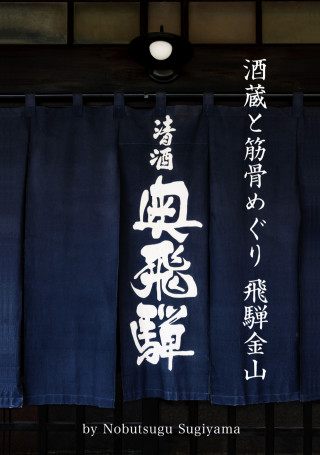 酒蔵と筋骨めぐり 飛騨金山
清酒
奥飛騨
by Nobutsugu Sugiyama